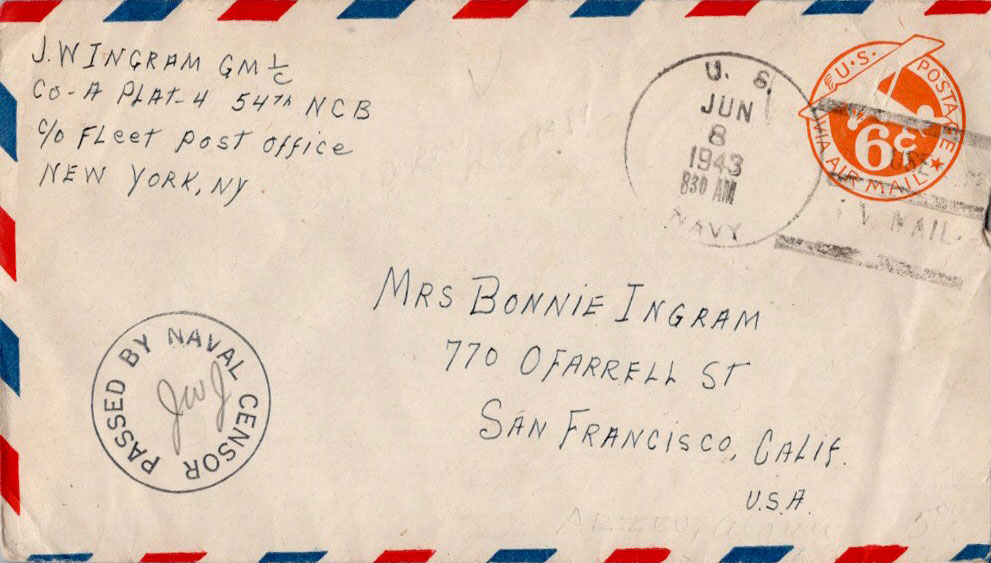 J. W INGRAM GM 1/C
CO-A PLAT-4 54TH NCB
C/O FLEET POST OFFICE
NEW YORK, NY
U. S.
JUN
8
1943
830 AM
NAVY
U.S. POSTAGE
6¢
VIA AIR MAIL
V MAIL
MRS BONNIE INGRAM
770 OFARRELL ST
SAN FRANCISCO, CALIF.
U.S.A.
PASSED BY NAVAL CENSOR